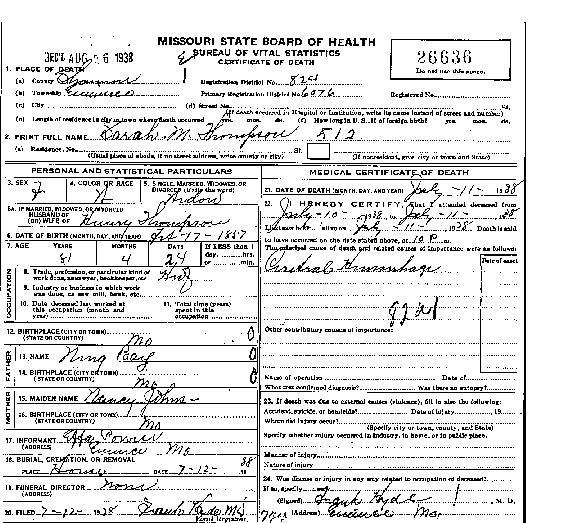 REC'D AUG 26 1938
MISSOURI STATE BOARD OF HEALTH
BUREAU OF VITAL STATISTICS
CERTIFICATE OF DEATH
26636
Do not use this space.
1. PLACE OF DEATH
(a) County Shannon Registration District No.
(b) Township Eminence Primary Registration District No. 6076 Registered No.
(c) City (d) Street No. St.
(If death occurred in Hospital or Institution, write its name instead of street and number)
(e) Length of residence in city or town where death occurred yrs. mos. ds. How long in U.S., if of foreign birth? yrs. mos. ds.
2. PRINT FULL NAME Sarah M. Thompson 512
(a) Residence, No. St.
(Usual place of abode, if no street address, write county or city) (If nonresident, give city or town and State)
PERSONAL AND STATISTICAL PARTICULARS
3. SEX F 4. COLOR OR RACE W 5. SINGLE, MARRIED, WIDOWED, OR DIVORCED (write the word) Widow
5A. IF MARRIED, WIDOWED, OR DIVORCED
HUSBAND OF
(OR) WIFE OF Henry Thompson
6. DATE OF BIRTH (MONTH, DAY, AND YEAR) Feb-17-1857
7. AGE YEARS MONTHS DAYS If LESS than 1 day, hrs. or min.
81 4 24
OCCUPATION
8. Trade, profession, or particular kind of work done, sawyer, bookkeeper, etc.
9. Industry or business in which work was done, as saw mill, bank, etc.
10. Date deceased last worked at this occupation (month and year)
11. Total time (years) spent in this occupation
12. BIRTHPLACE (CITY OR TOWN)
(STATE OR COUNTRY) Mo 0
FATHER
13. NAME 0
14. BIRTHPLACE (CITY OR TOWN)
(STATE OR COUNTRY) Mo 0
MOTHER
15. MAIDEN NAME Nancy Johns
16. BIRTHPLACE (CITY OR TOWN)
(STATE OR COUNTRY) Mo
17. INFORMANT
(ADDRESS) Eminence Mo
18. BURIAL, CREMATION, OR REMOVAL
PLACE DATE 7-12- 38
19. FUNERAL DIRECTOR None
(ADDRESS)
20. FILED 7-12- 1938 Frank Hyde MD
Local Registrar
MEDICAL CERTIFICATE OF DEATH
21. DATE OF DEATH (MONTH, DAY, AND YEAR) July -11- 1938
22. I HEREBY CERTIFY, That I attended deceased from
July -10- 1938, to July -11- 1938
I last saw h alive on July -11- 1938 Death is said
to have occurred on the date stated above, at 10 P m.
The principal cause of death and related causes of importance were as follows:
Date of onset
Cerebral Hemorrhage
Other contributory causes of importance:
Name of operation Date of
What test confirmed diagnosis? Was there an autopsy?
23. If death was due to external causes (violence), fill in also the following:
Accident, suicide, or homicide? Date of injury , 19
Where did injury occur?
(Specify city or town, county, and State)
Specify whether injury occurred in industry, in home, or in public place.
Manner of injury
Nature of injury
24. Was disease or injury in any way related to occupation of deceased?
If so, specify
(Signed) Frank Hyde M.D.
(Address) Eminence Mo.